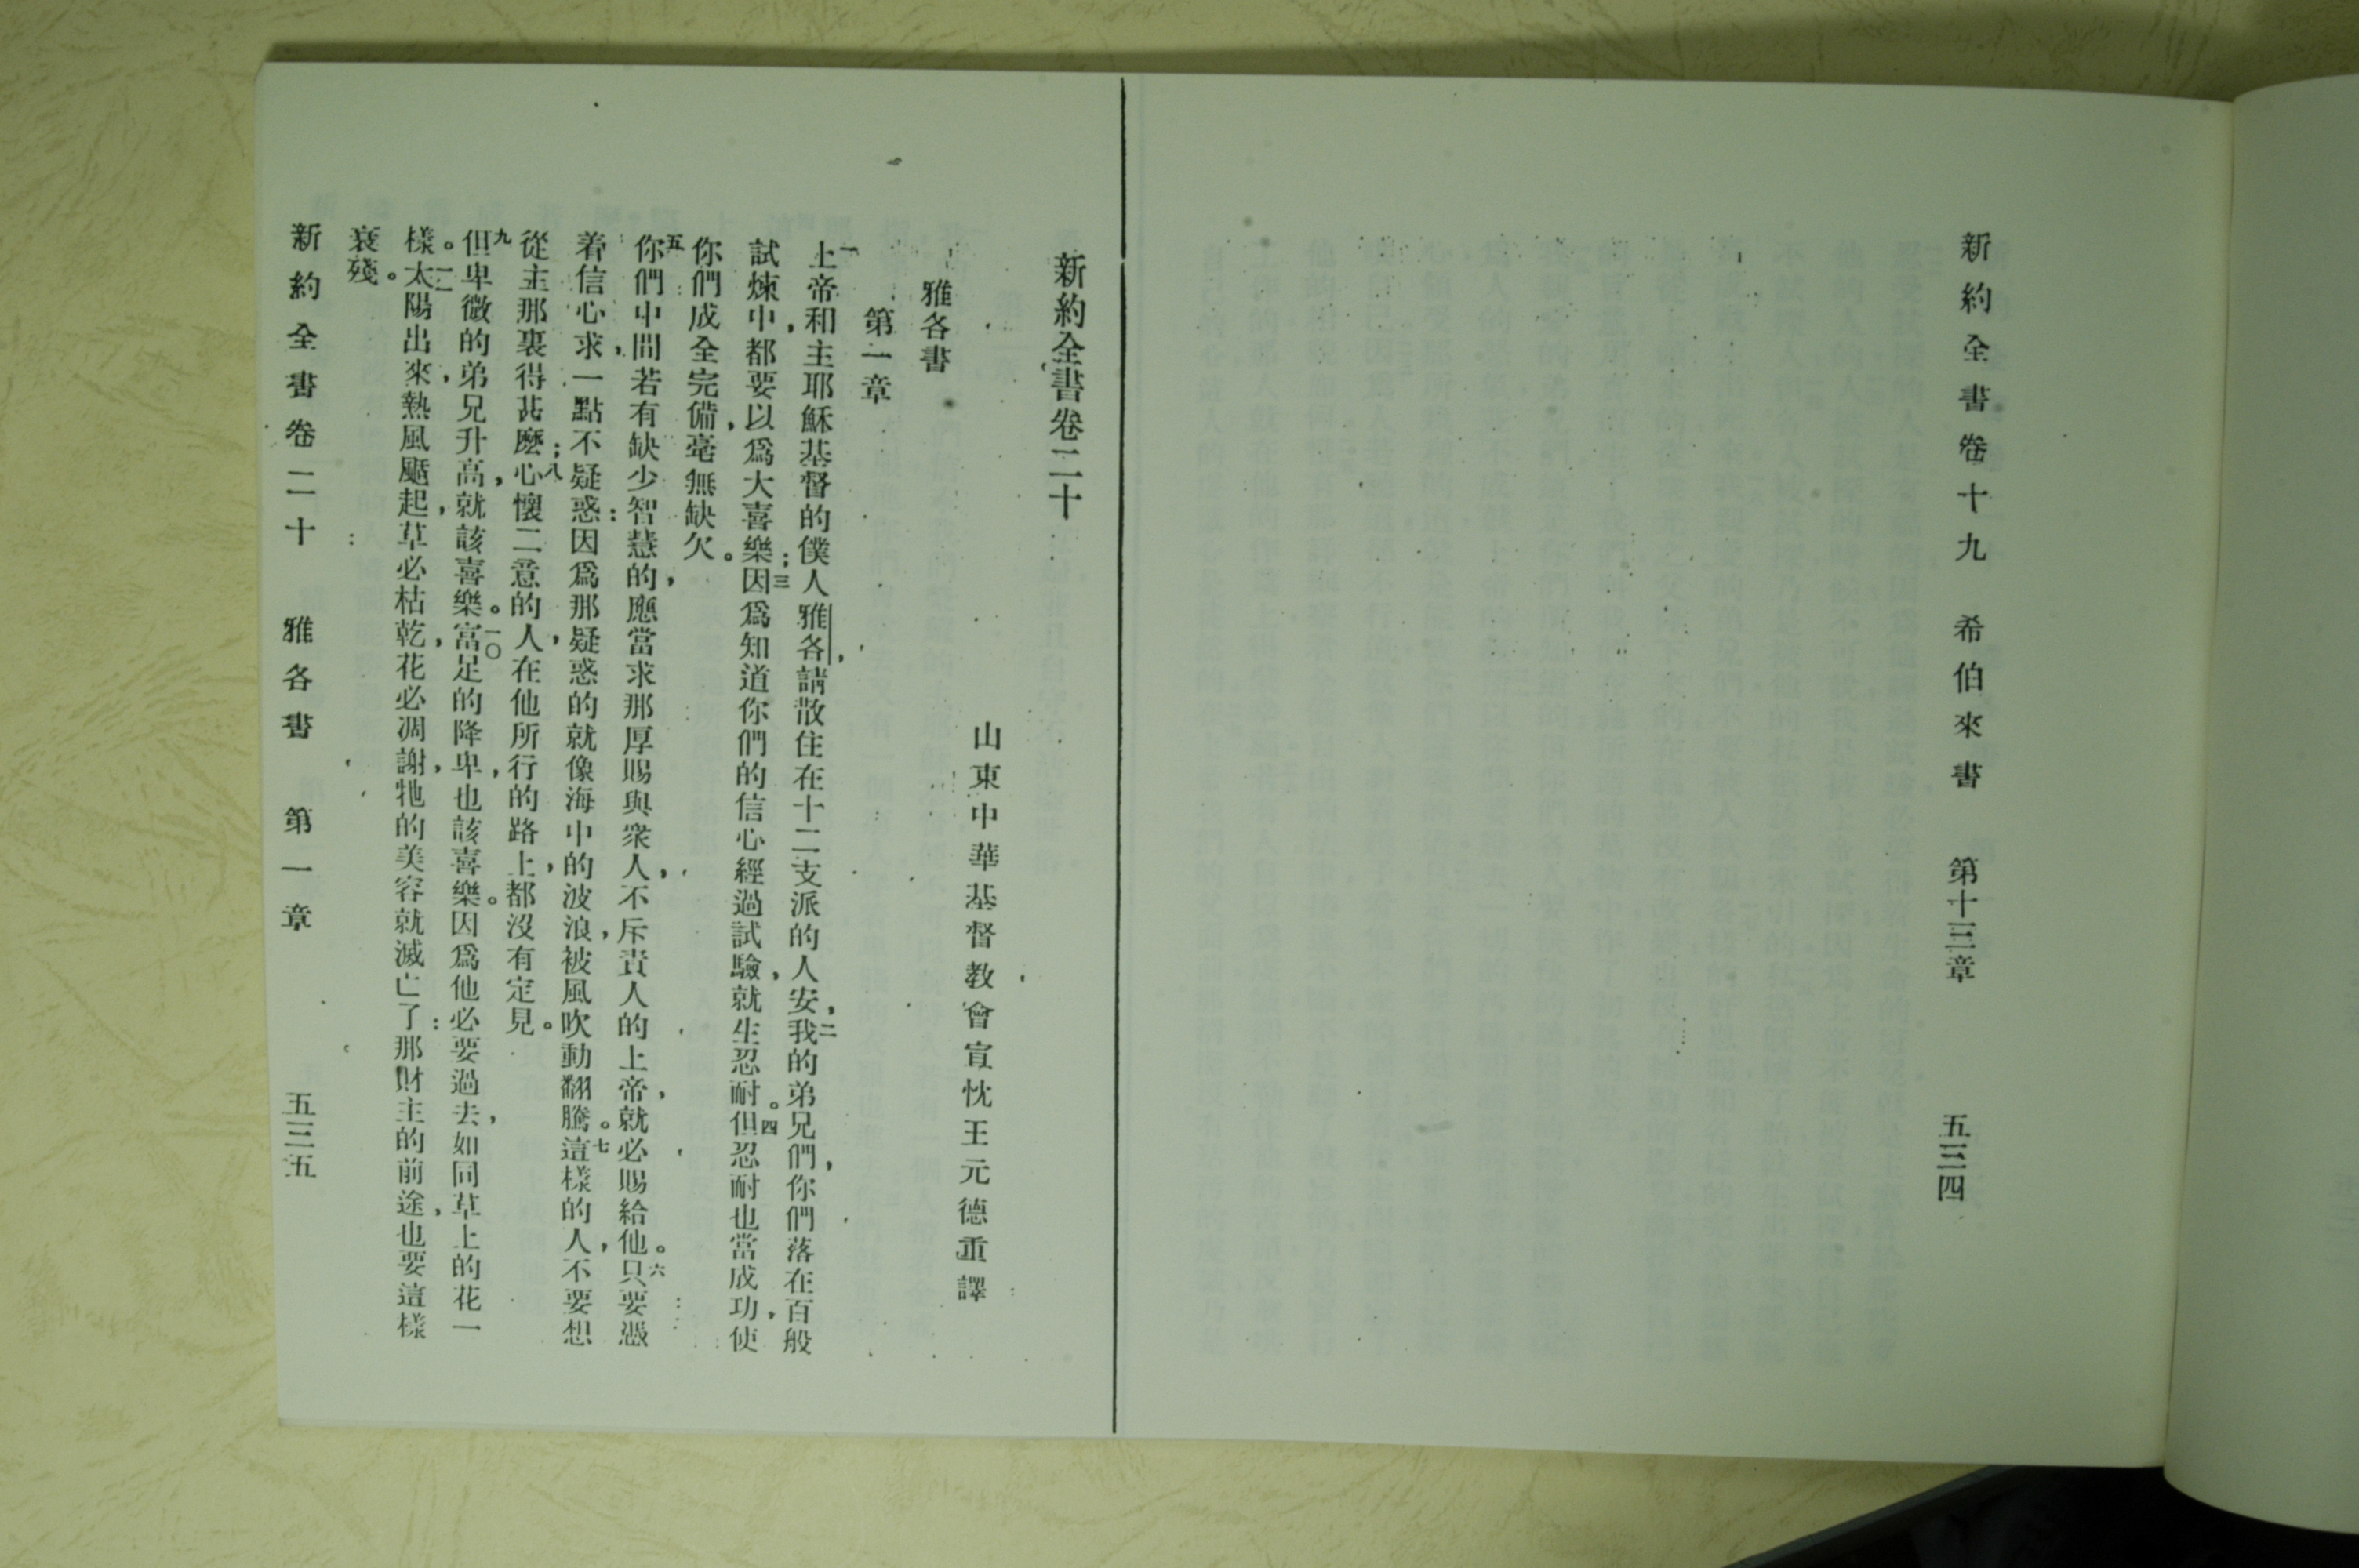 新約全書卷十九　希伯來書　第十三章　五三四
新約全書卷二十
山東中華基督教會宣忱王元德重譯
雅各書
第一章
一上帝和主耶穌基督的僕人雅各，請散住在十二支派的人安，二我的弟兄們，你們落在百般
試煉中，都要以爲大喜樂；三因爲知道你們的信心經過試驗，就生忍耐。四但忍耐也當成功，使
你們成全完備，毫無缺欠。
五你們中間若有缺少智慧的，應當求那厚賜與衆人，不斥責人的上帝，就必賜給他。六只要憑
着信心求，一點不疑惑：因爲那疑惑的就像海中的波浪，被風吹動翻騰。七這樣的人，不要想
從主那裏得甚麽；八心懷二意的人，在他所行的路上，都沒有定見。
九但卑微的弟兄升高，就該喜樂。一〇富足的降卑，也該喜樂。因爲他必要過去，如同草上的花一
樣。一一太陽出來，熱風颳起，草必枯乾，花必凋謝，牠的美容就滅亡了：那財主的前途，也要這樣
衰殘。
新約全書卷二十　雅各書　第一章　五三五